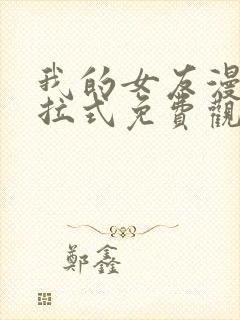 我的女友漫
拉式免費觀
鄭鑫